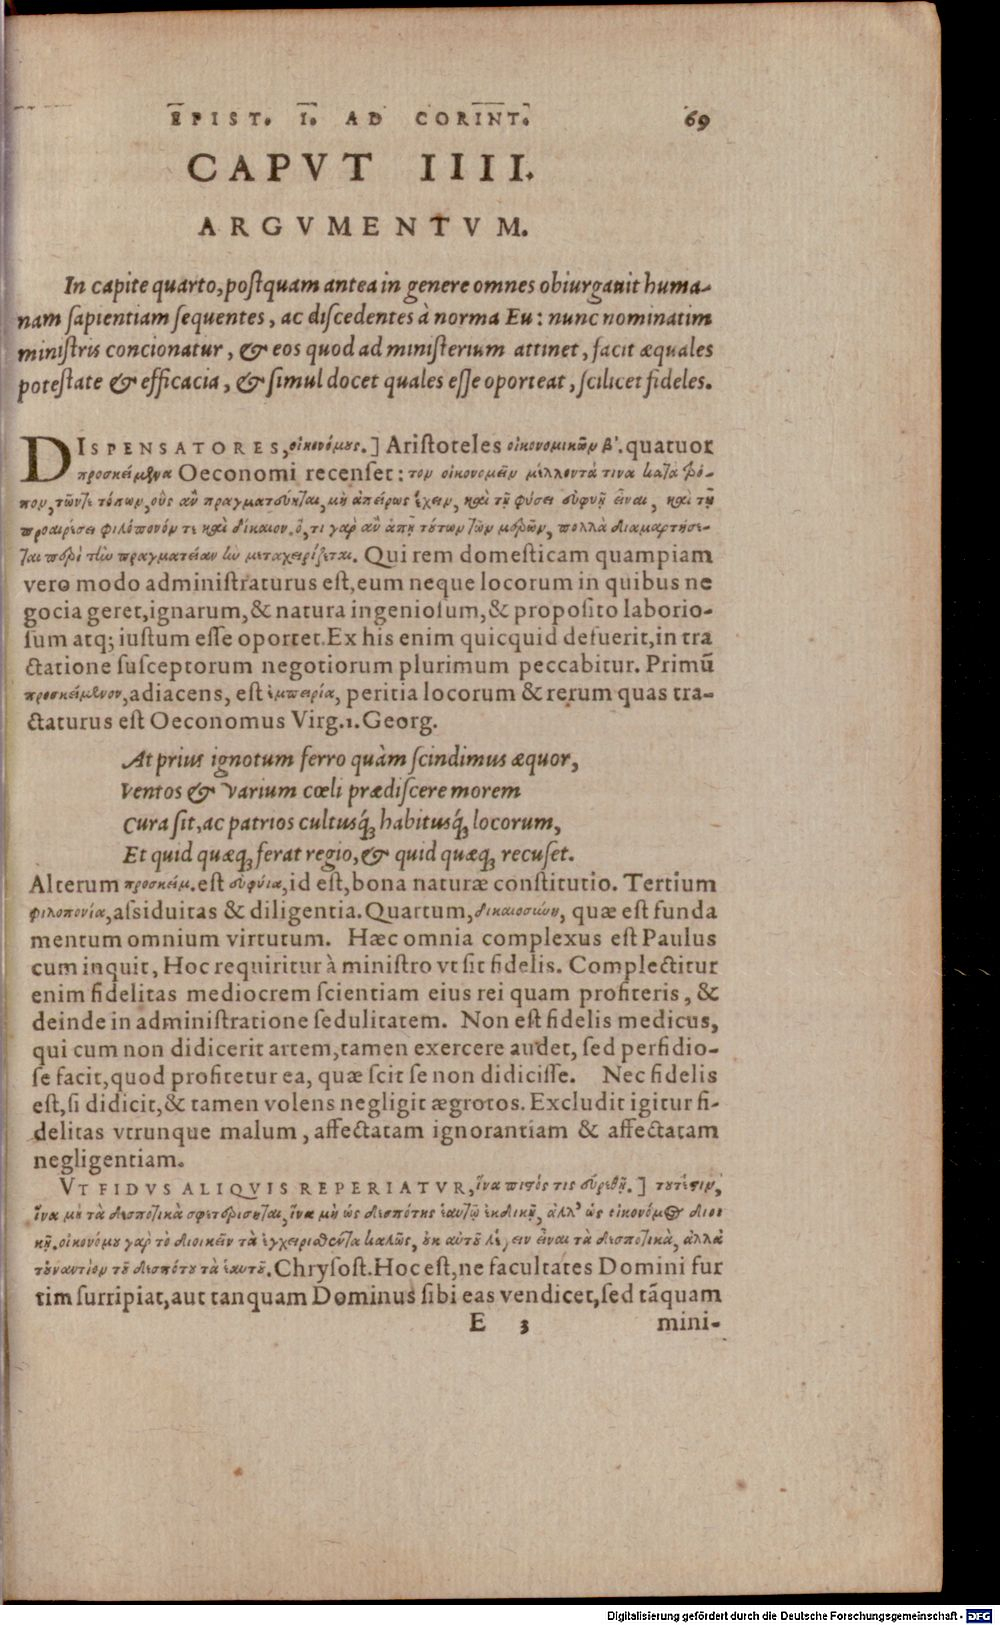 EPIST. I. AD CORINT. 69
CAPVT IIII.
ARGVMENTVM.
In capite quarto, postquam antea in genere omnes obiurgauit huma-
nam sapientiam sequentes, ac discedentes à norma Eu: nunc nominatim
ministris concionatur, & eos quod ad ministerium attinet, facit æquales
potestate & efficacia, & simul docet quales esse oporteat, scilicet fideles.
DISPENSATORES, οἰκονόμους.] Aristoteles οἰκονομικῶν β'. quatuor
προσκείμενα Oeconomi recenset: τον οἰκονομεῖν μέλλοντά τινα κατὰ τρό-
πον, τῶντε τόπων, οὓς ἂν πραγματεύηται, μὴ ἀπείρως ἔχειν, καὶ τῇ φύσει εὐφυῆ εἶναι, καὶ τῇ
προαιρέσει φιλόπονόν τε καὶ δίκαιον. ὅ, τι γὰρ ἂν ἀπῇ τούτων τῶν μερῶν, πολλὰ διαμαρτήσε-
ται περὶ τὴν πραγματείαν ἣν μεταχειρίζεται. Qui rem domesticam quampiam
vero modo administraturus est, eum neque locorum in quibus ne
gocia geret, ignarum, & natura ingeniosum, & proposito laborio-
sum atq; iustum esse oportet. Ex his enim quicquid defuerit, in tra
ctatione susceptorum negotiorum plurimum peccabitur. Primū
προσκείμενον, adiacens, est ἐμπειρία, peritia locorum & rerum quas tra-
ctaturus est Oeconomus Virg. 1. Georg.
At prius ignotum ferro quàm scindimus æquor,
Ventos & varium cœli prædiscere morem
Cura sit, ac patrios cultusq́; habitusq́; locorum,
Et quid quæq; ferat regio, & quid quæq; recuset.
Alterum προσκείμ. est εὐφυία, id est, bona naturæ constitutio. Tertium
φιλοπονία, assiduitas & diligentia. Quartum, δικαιοσύνη, quæ est funda
mentum omnium virtutum. Hæc omnia complexus est Paulus
cum inquit, Hoc requiritur à ministro vt sit fidelis. Complectitur
enim fidelitas mediocrem scientiam eius rei quam profiteris, &
deinde in administratione sedulitatem. Non est fidelis medicus,
qui cum non didicerit artem, tamen exercere audet, sed perfidio-
se facit, quod profitetur ea, quæ scit se non didicisse. Nec fidelis
est, si didicit, & tamen volens negligit ægrotos. Excludit igitur fi-
delitas vtrunque malum, affectatam ignorantiam & affectatam
negligentiam.
VT FIDVS ALIQVIS REPERIATVR, ἵνα πιστός τις εὑρεθῇ.] τουτέστιν,
ἵνα μὴ τὰ δεσποτικὰ σφετερίσηται, ἵνα μὴ ὡς δεσπότης ἑαυτῷ ἐκδικῇ, ἀλλ' ὡς οἰκονόμος διοι
κῇ. οἰκονόμου γὰρ τὸ διοικεῖν τὰ ἐγχειρισθέντα καλῶς, οὐκ αὐτοῦ λέγειν εἶναι τὰ δεσποτικὰ, ἀλλὰ
τοὐναντίον τοῦ δεσπότου τὰ ἑαυτοῦ. Chrysost. Hoc est, ne facultates Domini fur
tim surripiat, aut tanquam Dominus sibi eas vendicet, sed tāquam
E 3 mini-
Digitalisierung gefördert durch die Deutsche Forschungsgemeinschaft - DFG